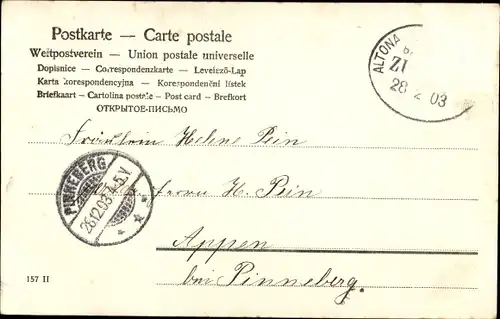 Postkarte — Carte postale
Weltpostverein — Union postale universelle
Dopisnice — Correspondenzkarte — Levelező-Lap
Karta korespondencyjna — Korespondenční lístek
Briefkaart — Cartolina postale — Post card — Brefkort
ОТКРЫТОЕ-ПИСЬМО
ALTONA
ZI
28 2 03
Fräulein Helene Pein
PINNEBERG
26.12.03. 4-5.V.
Herrn H. Pein
Appen
bei Pinneberg.
157 II